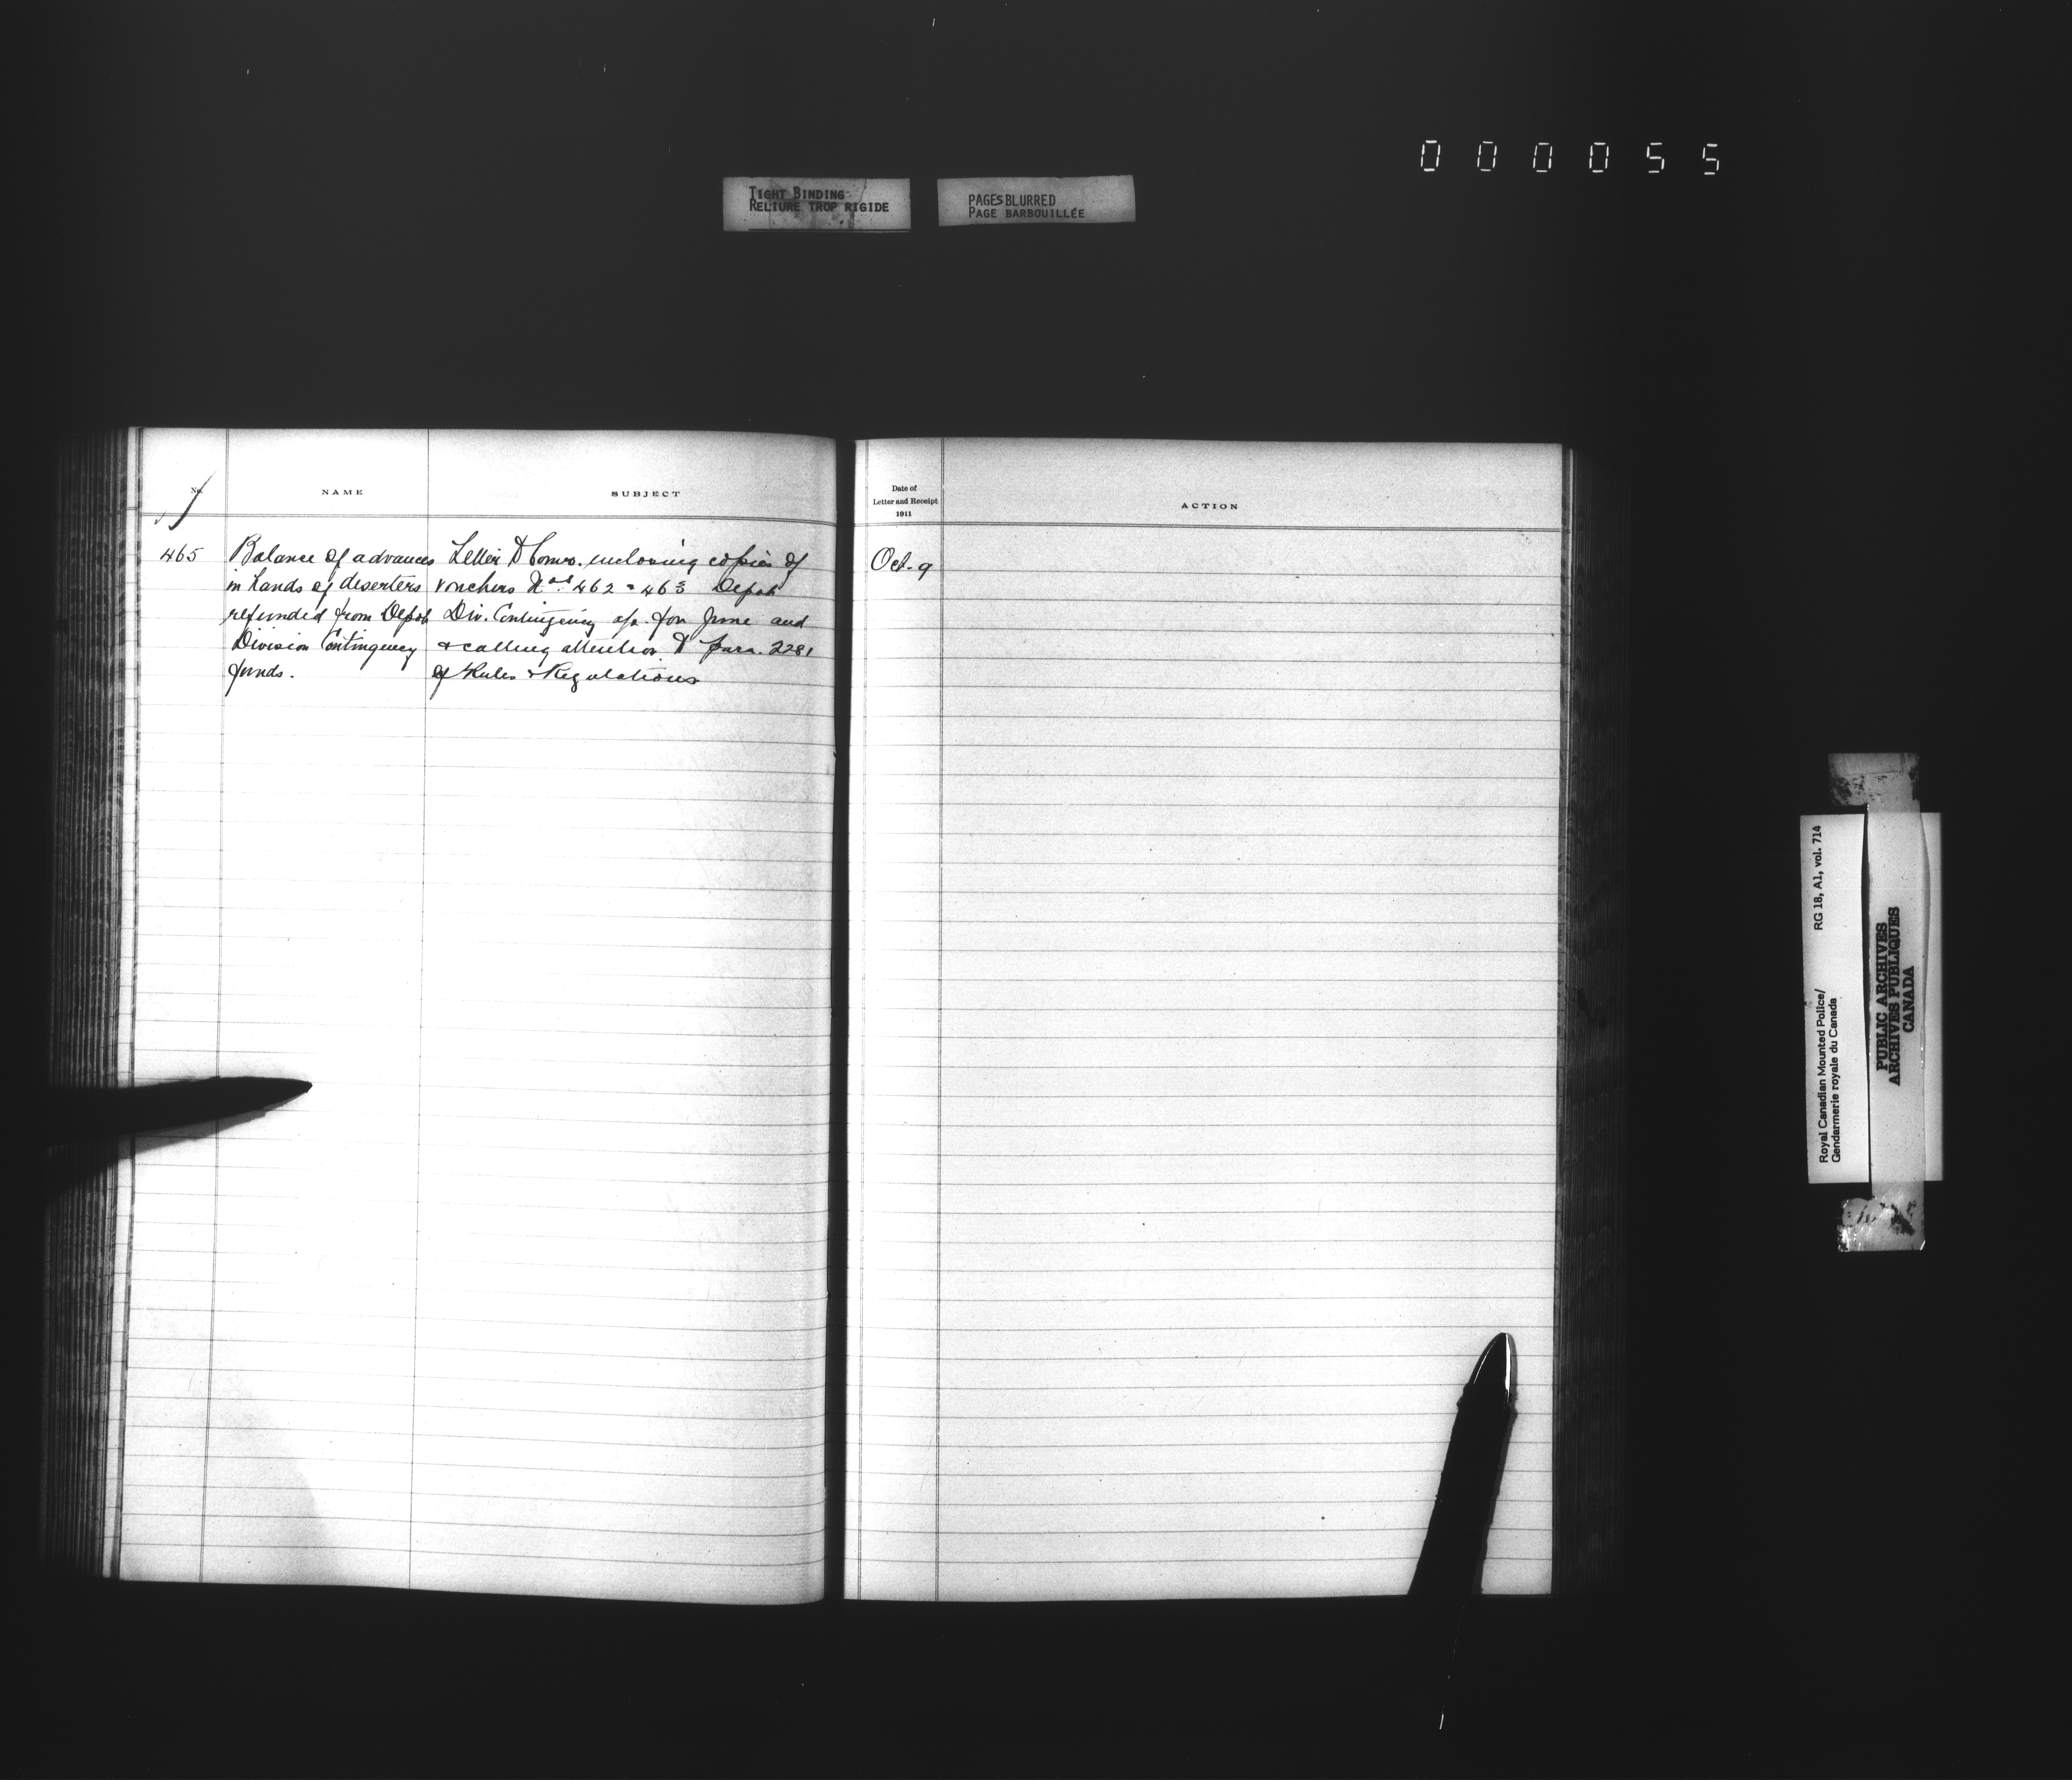 000055
TIGHT BINDING
RELIURE TROP RIGIDE
PAGES BLURRED
PAGE BARBOUILLÉE
No.
NAME
SUBJECT
Date of
Letter and Receipt
1911
ACTION
465
Balance of advances
in hands of deserters
refunded from Depot
Division Contingency
funds.
Letter to Comr. inclosing copies of
vouchers Nos. 462 & 463 Depot
Div. Contingency a/c. for June and
& calling attention to para. 2281
of Rules & Regulations
Oct. 9
Royal Canadian Mounted Police/
Gendarmerie royale du Canada
RG 18, A1, vol. 714
PUBLIC ARCHIVES
ARCHIVES PUBLIQUES
CANADA